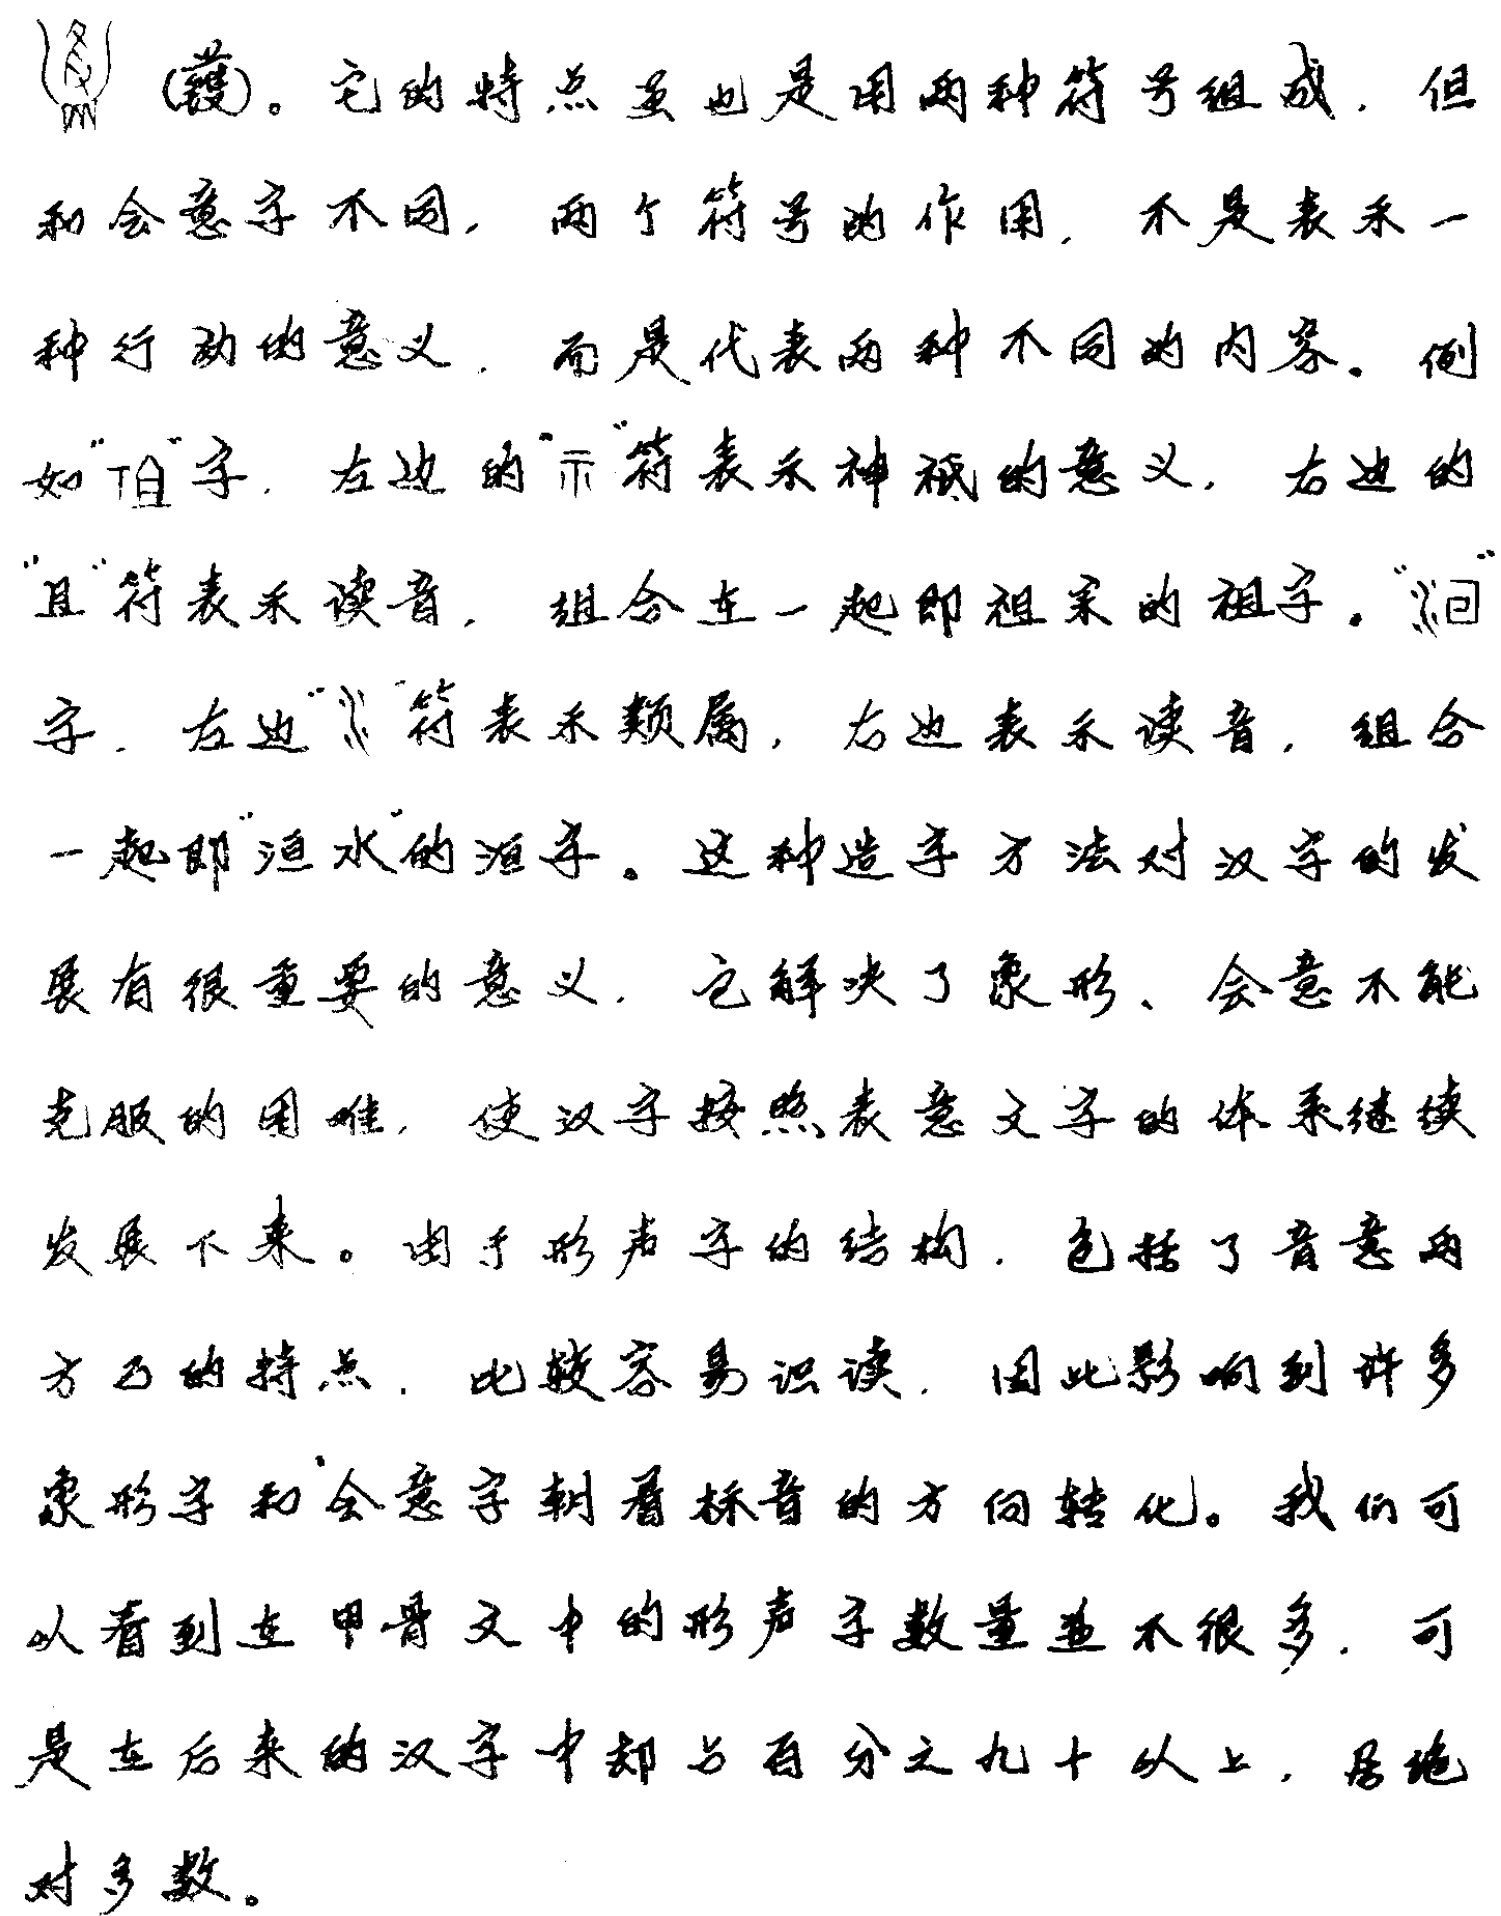 (蒦)。它的特点虽也是用两种符号组成，但
和会意字不同，两个符号的作用，不是表示一
种行动的意义，而是代表两种不同的内容。例
如“”字，左边的“示”符表示神祇的意义，右边的
“且”符表示读音，组合在一起即祖宗的祖字。“”
字，左边“”符表示类属，右边表示读音，组合
一起即“洹水”的洹字。这种造字方法对汉字的发
展有很重要的意义，它解决了象形、会意不能
克服的困难，使汉字按照表意文字的体系继续
发展下来。由于形声字的结构，包括了音意两
方面的特点，比较容易识读，因此影响到许多
象形字和会意字朝着标音的方向转化。我们可
以看到在甲骨文中的形声字数量并不很多，可
是在后来的汉字中却占百分之九十以上，居绝
对多数。